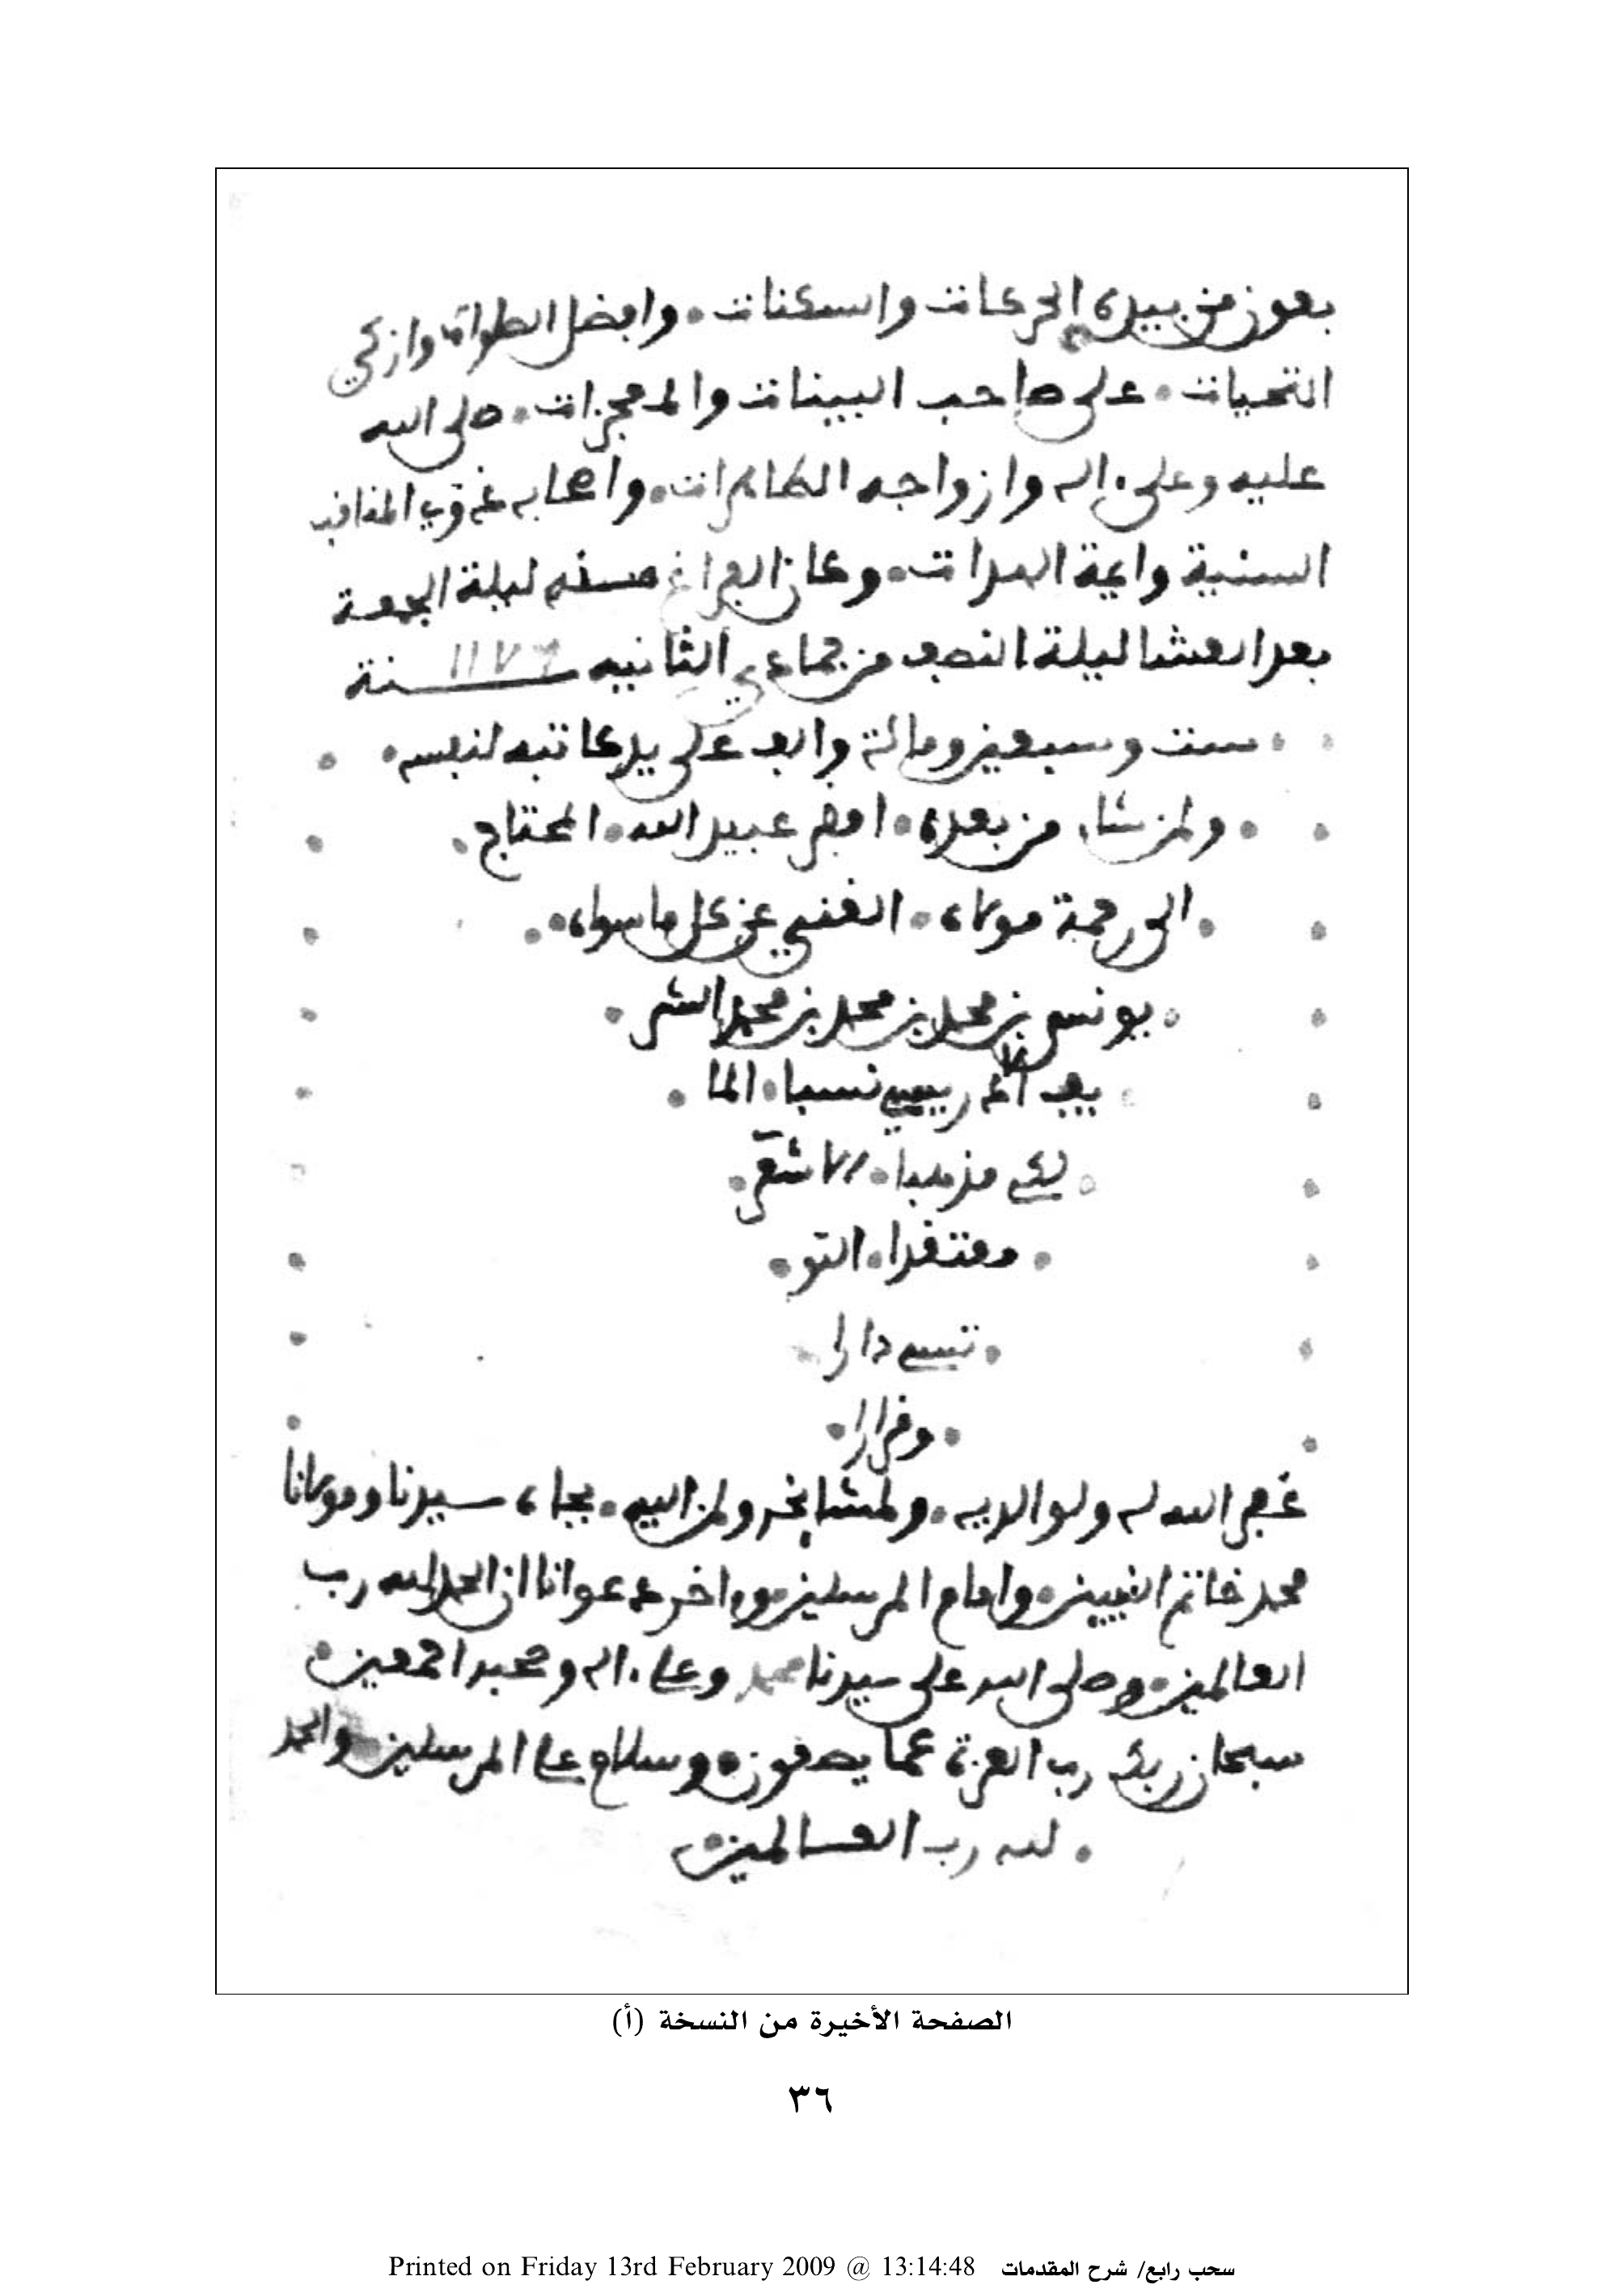 بعون من بيده الحركات والسكنات. وافضل الصلواة وازكى
التحيات. على صاحب البينات والمعجزات. صلى الله
عليه وعلى ءاله وازواجه الطاهرات. واصحابه
السنية وايمة الهداة. وكان الفراغ منه ليلة الجمعة
بعد العشا ليلة النصف من جمادي الثانيه سنة 1176
ست وسبعين ومائة والف على يد كاتبه لنفسه.
ولمن شاء من بعده. افقر عبيد الله. المحتاج.
الى رحمة مولاه. الغني عن كل ما سواه.
يونس بن محمد بن محمد بن محمد الشر
يف الادريسي نسبا. الما
لكي مذهبا. الاشعر
معتقدا. التو
نسي دارا
وقرارا.
غفر الله له ولوالديه. ولمشايخه ولمن اليه. بجاه سيدنا ومولانا
محمد خاتم النبيين. وامام المرسلين. وءاخر دعوانا ان الحمد لله رب
العالمين. وصلى الله على سيدنا محمد وعلى ءاله وصحبه اجمعين.
سبحان ربك رب العزة عما يصفون. وسلام على المرسلين. والحمد
لله رب العالمين.
الصفحة الأخيرة من النسخة (أ)
٣٦
Printed on Friday 13rd February 2009 @ 13:14:48 سحب رابع/ شرح المقدمات